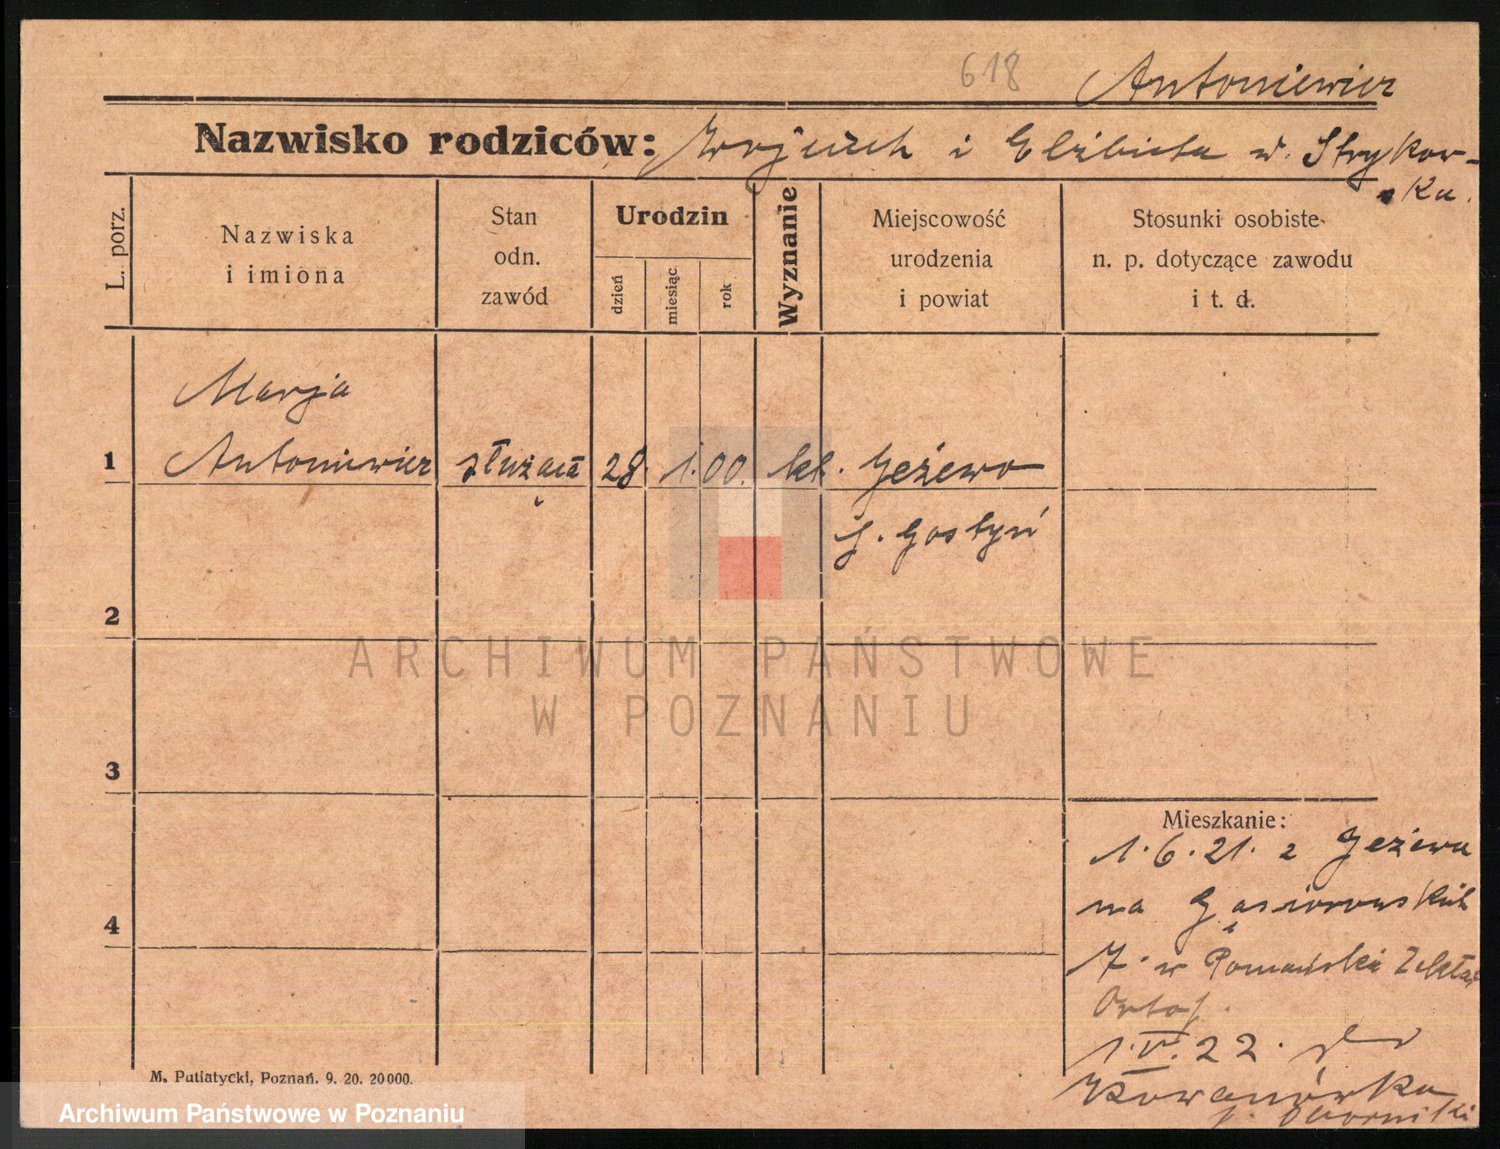 618
Antoniewicz
Nazwisko rodziców: Wojciech i Elżbieta w. Strykow-
ska.
L. porz.
Nazwiska
i imiona
Stan
odn.
zawód
Urodzin
dzień
miesiąc
rok
Wyznanie
Miejscowość
urodzenia
i powiat
Stosunki osobiste
n. p. dotyczące zawodu
i t. d.
Marja
1 Antoniewicz służąca 28. 1. 00. kat. Jeżewo
p. Gostyń
2
3
4
ARCHIWUM PAŃSTWOWE
W POZNANIU
Mieszkanie:
1. 6. 21. z Jeżewa
na Gąsiorowskich
7. w Poznański Zakład
Ortop.
1. V. 22. do
Kowanówka
p. Obornicki
M. Putiatycki, Poznań. 9. 20. 20000.
Archiwum Państwowe w Poznaniu